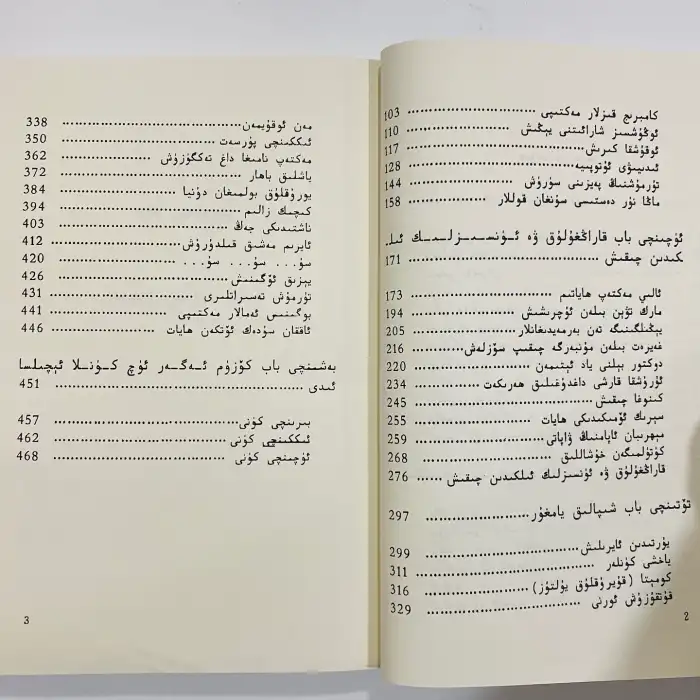 كامبرىج قىزلار مەكتىپى ........ 103
ئوڭۇشسىز شارائىتنى يېڭىش ........ 110
ئوقۇشقا كىرىش ........ 117
ئىدىيىۋى ئۇتوپىيە ........ 128
تۇرمۇشنىڭ پەيزىنى سۈرۈش ........ 144
ماڭا نۇر دەستىسى سۇنغان قوللار ........ 158
ئۈچىنچى باب قاراڭغۇلۇق ۋە ئۈنسىزلىك ئىل
كىدىن چىقىش ........ 171
ئالىي مەكتەپ ھاياتىم ........ 173
مارك تۋېن بىلەن ئۇچرىشىش ........ 194
يېڭىلگىنىگە تەن بەرمەيدىغانلار ........ 205
غەيرەت بىلەن مۇنبەرگە چىقىپ سۆزلەش ........ 216
دوكتور بېلنى ياد ئېتىمەن ........ 222
ئۇرۇشقا قارشى داغدۇغىلىق ھەرىكەت ........ 234
كىنوغا چىقىش ........ 245
سېرىك ئۆمىكىدىكى ھايات ........ 255
مېھرىبان ئاپامنىڭ ۋاپاتى ........ 259
كۈتۈلمىگەن خۇشاللىق ........ 268
قاراڭغۇلۇق ۋە ئۈنسىزلىك ئىلكىدىن چىقىش ...... 276
تۆتىنچى باب شىپالىق يامغۇر ........ 297
يۇرتىدىن ئايرىلىش ........ 299
ياخشى كۈنلەر ........ 311
كومېتا (قۇيرۇقلۇق يۇلتۇز) ........ 316
قۇتقۇزۇش ئورنى ........ 329
2
مەن ئوقۇيمەن ........ 338
ئىككىنچى پۇرسەت ........ 350
مەكتەپ نامىغا داغ تەگكۈزۈش ........ 362
ياشلىق باھار ........ 372
يورۇقلۇق بولمىغان دۇنيا ........ 384
كىچىك زالىم ........ 394
ناشتىدىكى جەڭ ........ 403
ئايرىم مەشىق قىلدۇرۇش ........ 412
سۇ... سۇ... سۇ... ........ 420
يېزىق ئۆگىنىش ........ 426
تۇرمۇش تەسىراتلىرى ........ 431
بوگىنىس ئەمالار مەكتىپى ........ 441
ئاققان سۇدەك ئۆتكەن ھايات ........ 446
بەشىنچى باب كۆزۈم ئەگەر ئۈچ كۈنلا ئېچىلسا
ئىدى ........ 451
بىرىنچى كۈنى ........ 457
ئىككىنچى كۈنى ........ 462
ئۈچىنچى كۈنى ........ 468
3